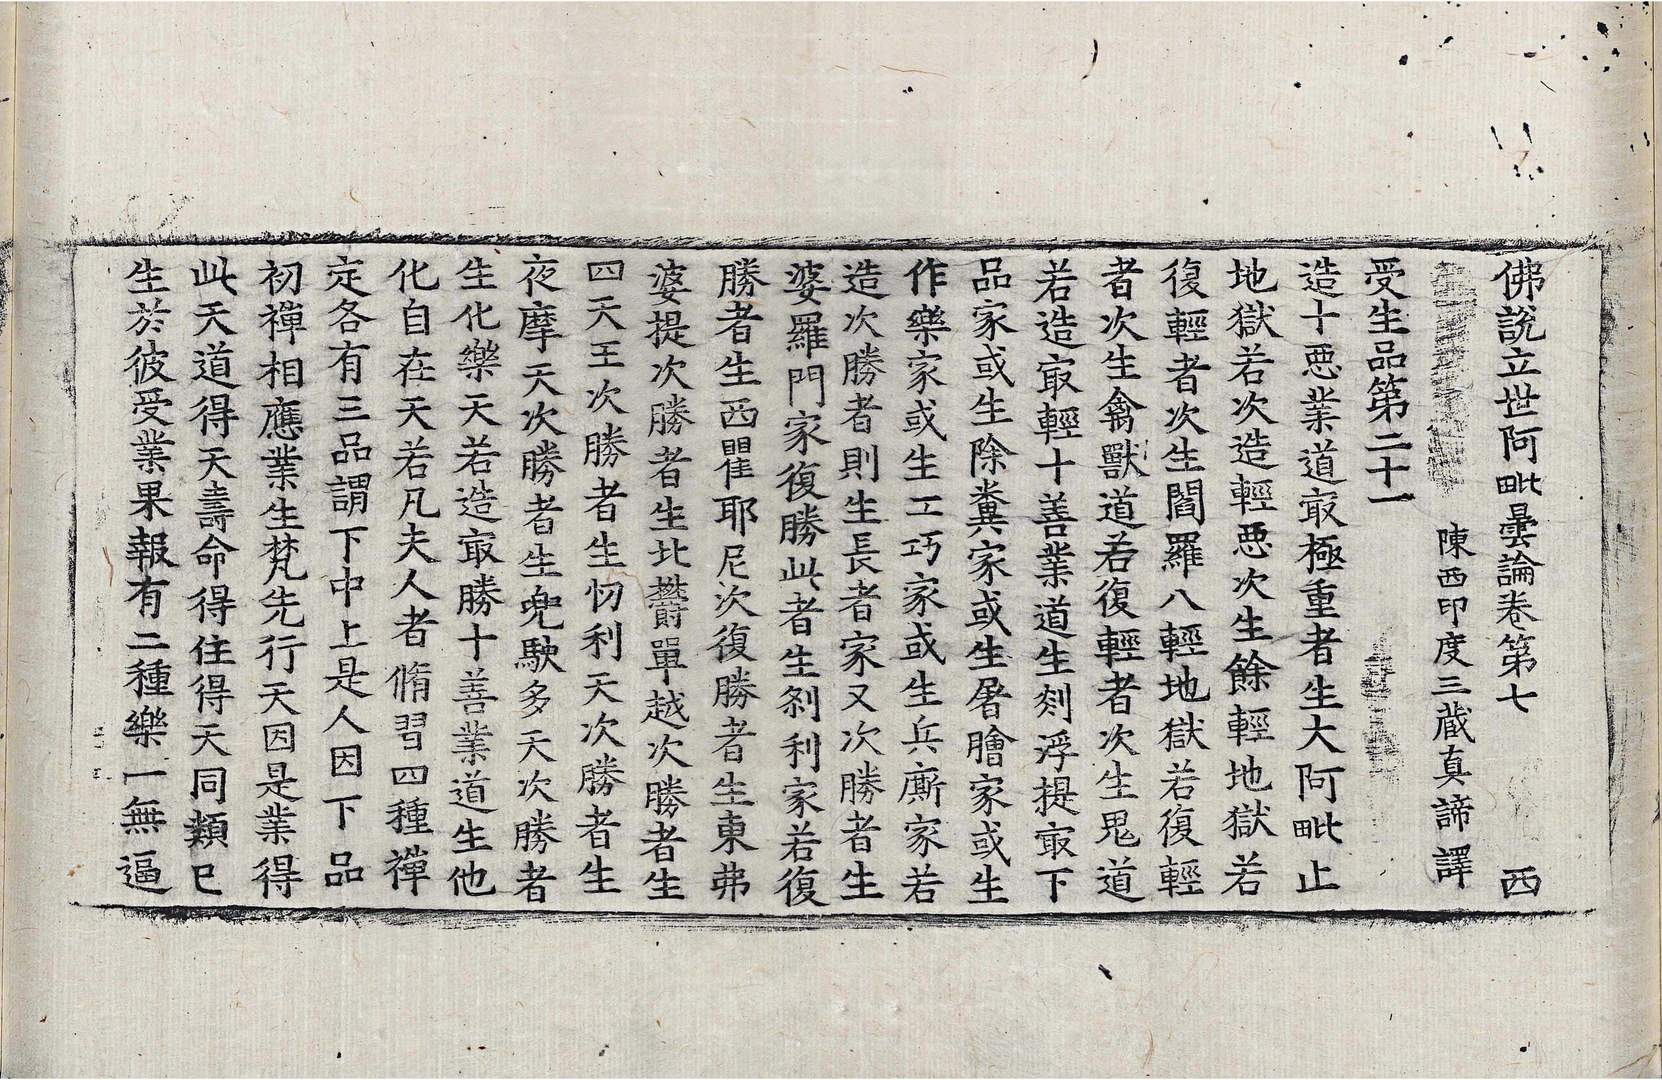 佛說立世阿毗曇論卷第七 西
陳西印度三藏真諦譯
受生品第二十一
造十惡業道㝡極重者生大阿毗止
地獄若次造輕惡次生餘輕地獄若
復輕者次生閻羅八輕地獄若復輕
者次生禽獸道若復輕者次生鬼道
若造㝡輕十善業道生剡浮提㝡下
品家或生除糞家或生屠膾家或生
作樂家或生工巧家或生兵廝家若
造次勝者則生長者家又次勝者生
婆羅門家復勝此者生刹利家若復
勝者生西瞿耶尼次復勝者生東弗
婆提次勝者生北欝單越次勝者生
四天王次勝者生忉利天次勝者生
夜摩天次勝者生兜駛多天次勝者
生化樂天若造㝡勝十善業道生他
化自在天若凡夫人者脩習四種禪
定各有三品謂下中上是人因下品
初禪相應業生梵先行天因是業得
此天道得天壽命得住得天同類已
生於彼受業果報有二種樂一無逼